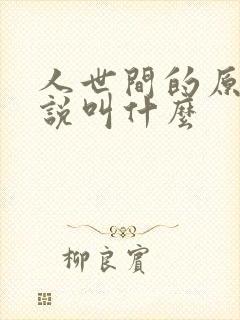 人世間的原
說叫什麼
柳良賓